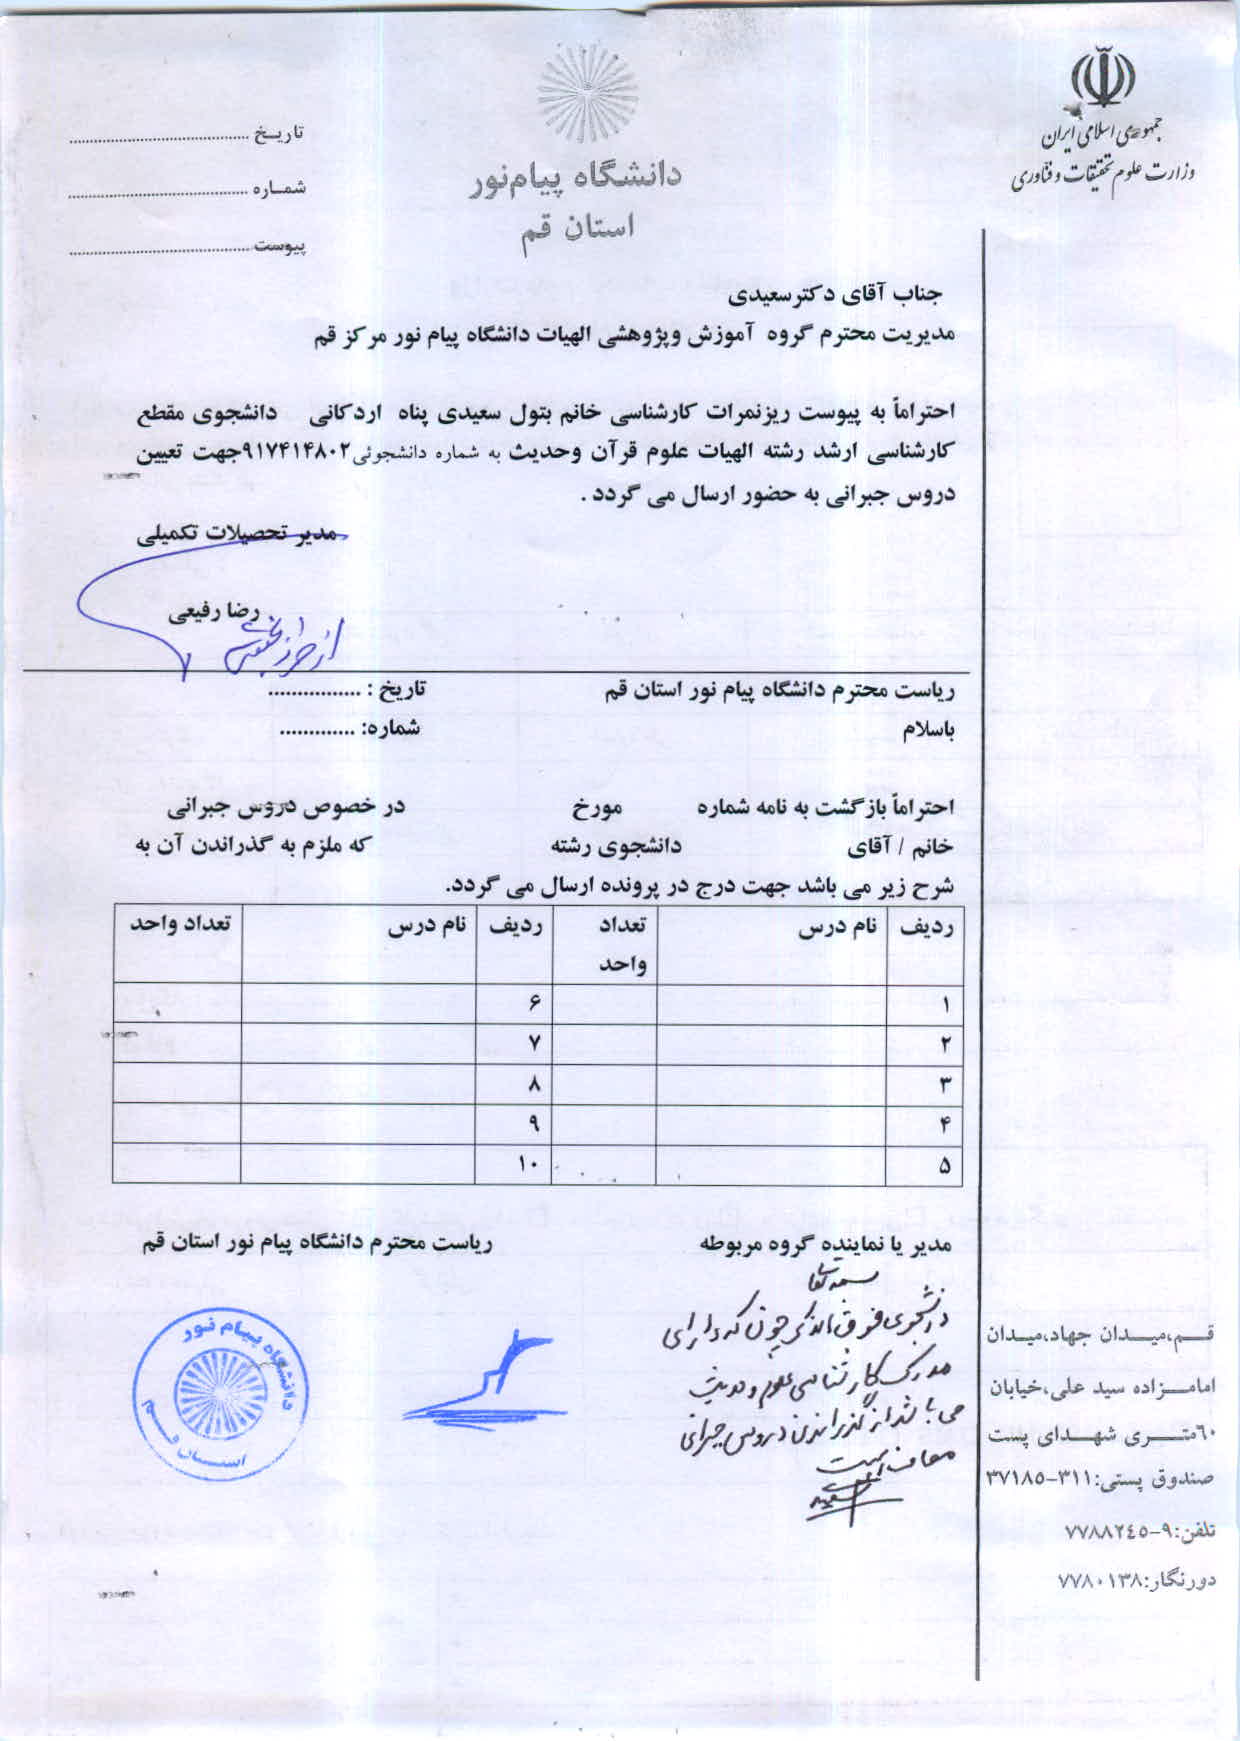 جمهوری اسلامی ایران
وزارت علوم تحقیقات و فناوری
دانشگاه پیام‌نور
استان قم
تاریـخ ........................................
شمـاره ........................................
پیوست ........................................
جناب آقای دکترسعیدی
مدیریت محترم گروه آموزش وپژوهشی الهیات دانشگاه پیام نور مرکز قم
احتراماً به پیوست ریزنمرات کارشناسی خانم بتول سعیدی پناه اردکانی دانشجوی مقطع
کارشناسی ارشد رشته الهیات علوم قرآن وحدیث به شماره دانشجوئی۹۱۷۴۱۴۸۰۲جهت تعیین
دروس جبرانی به حضور ارسال می گردد .
مدیر تحصیلات تکمیلی
رضا رفیعی
ریاست محترم دانشگاه پیام نور استان قم تاریخ : ................
باسلام شماره: .............
احتراماً بازگشت به نامه شماره مورخ در خصوص دروس جبرانی
خانم / آقای دانشجوی رشته که ملزم به گذراندن آن به
شرح زیر می باشد جهت درج در پرونده ارسال می گردد.
ردیف نام درس تعداد واحد ردیف نام درس تعداد واحد
۱ ۶
۲ ۷
۳ ۸
۴ ۹
۵ ۱۰
مدیر یا نماینده گروه مربوطه ریاست محترم دانشگاه پیام نور استان قم
دانشجوی فوق الذکر چون که دارای
مدرک کارشناسی علوم و حدیث
می باشد از گذراندن دروس جبرانی
معاف است
دانشگاه پیام نور
استـان قـم
قـم،میـدان جهاد،میـدان
امامـزاده سید علی،خیابان
۶۰متـری شهـدای پست
صندوق پستی:۳۱۱-۳۷۱۸۵
تلفن:۹-۷۷۸۸۲٤۵
دورنگار:۷۷۸۰۱۳۸